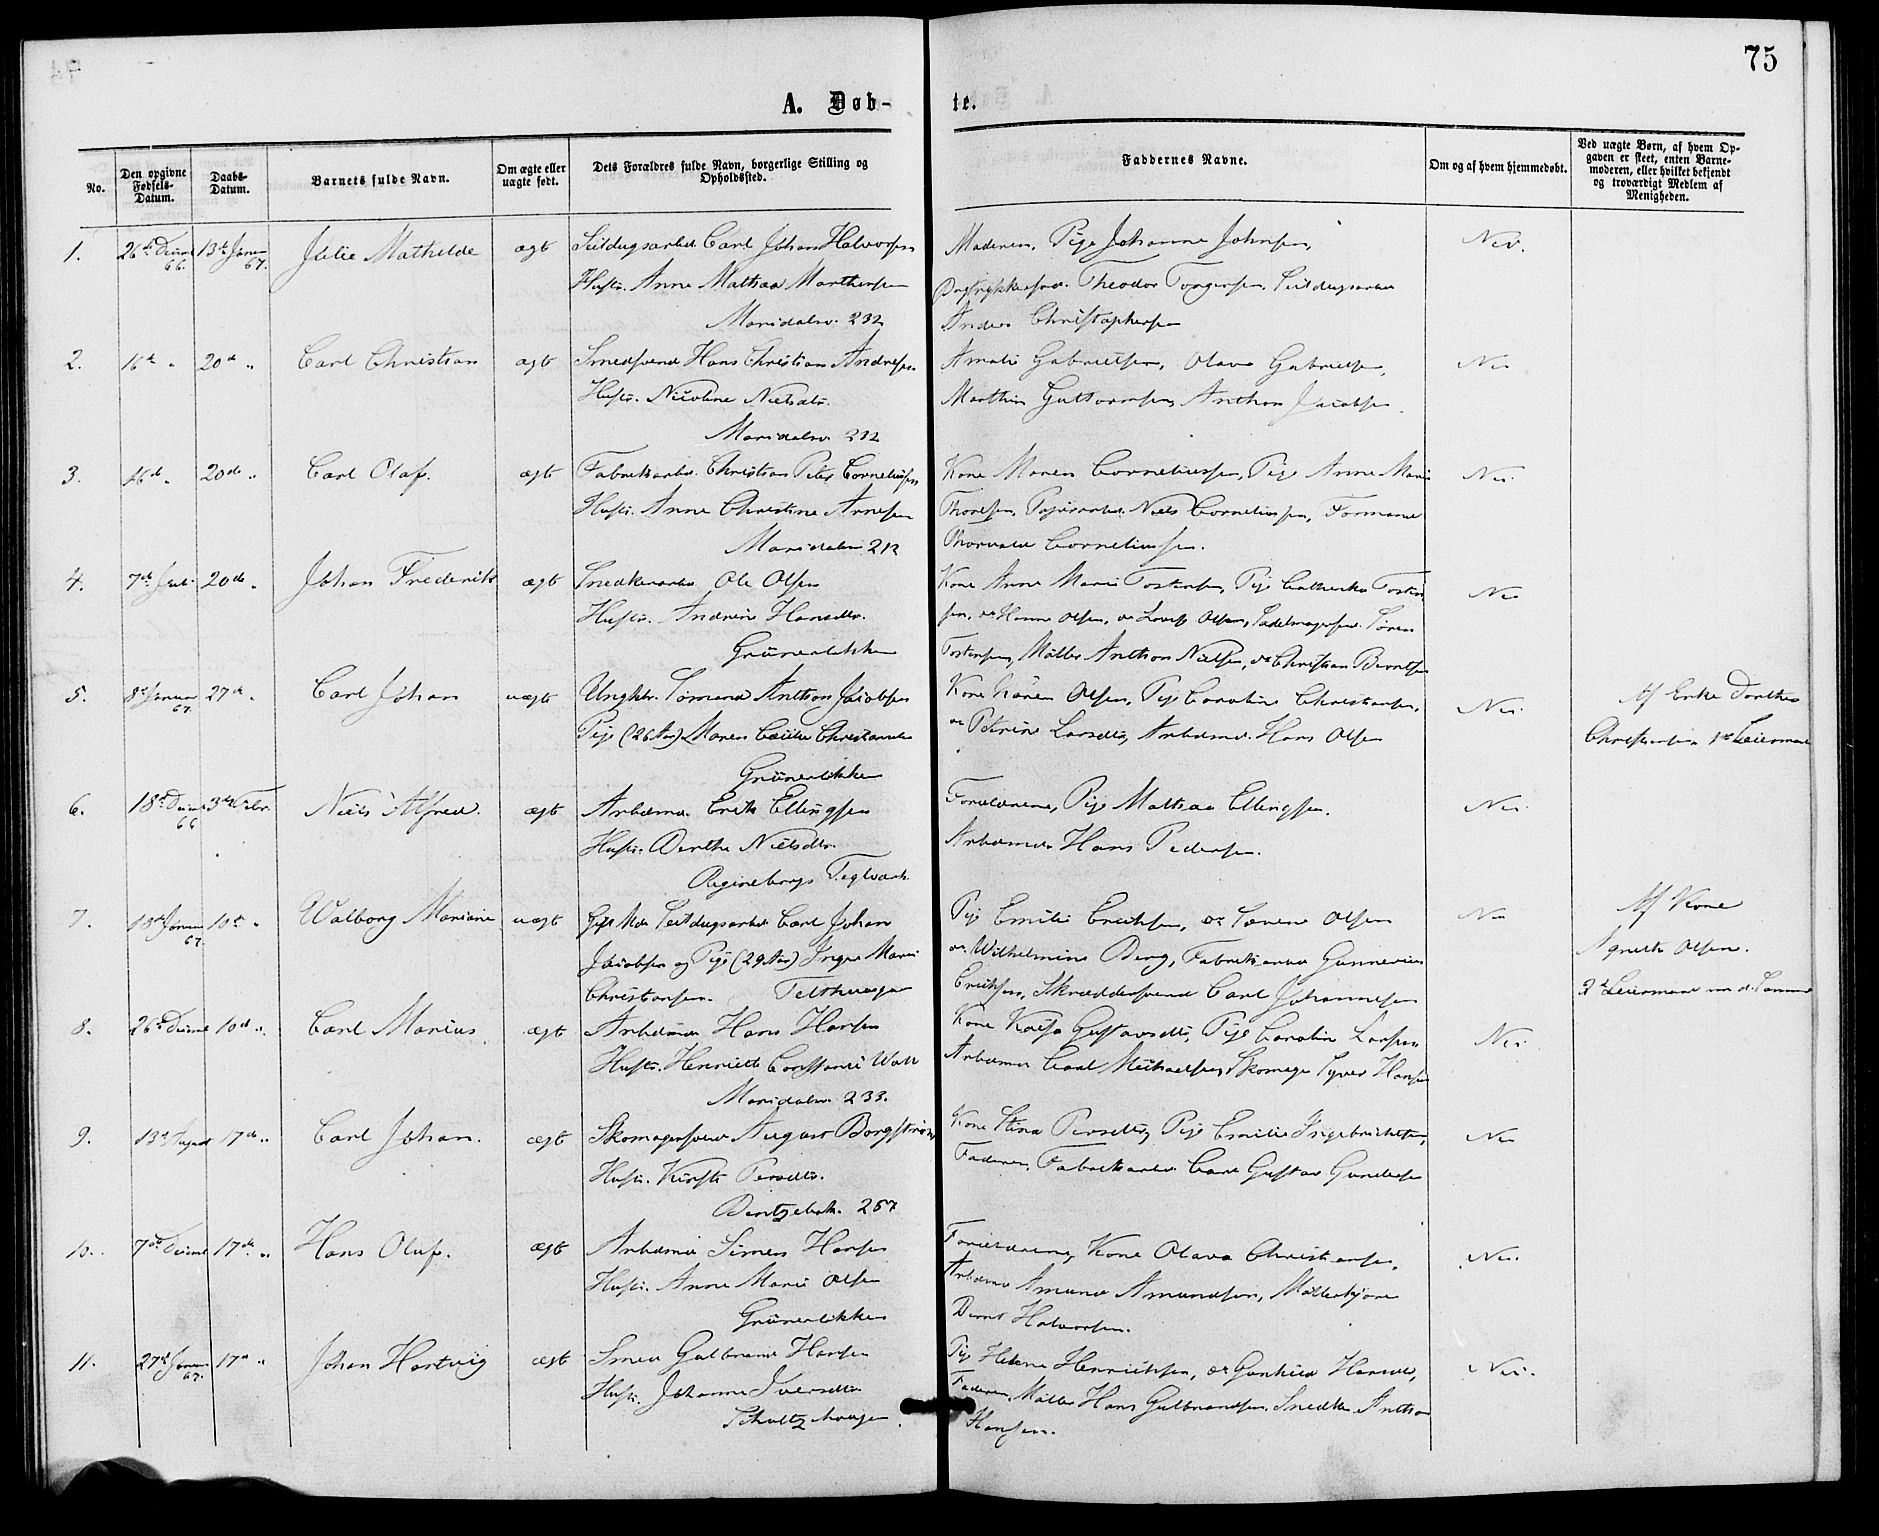 75
A. Døb- te.
No.
Den opgivne Fødsels-Datum.
Daabs-Datum.
Barnets fulde Navn.
Om ægte eller uægte født.
Dets Forældres fulde Navn, borgerlige Stilling og Opholdssted.
Faddernes Navne.
Om og af hvem hjemmedøbt.
Ved uægte Børn, af hvem Opgaven er skeet, enten Barnemoderen, eller hvilket bekjendt og troværdigt Medlem af Menigheden.
1. 26de 66. 13de Januar 67. Julie Mathilde ægt Seildugsarbed Carl Johan Halvorsen
Hustr. Anne Mathea Marthinsen
Maridalsv. 232
Moderen, Pige Johanne Johnsen,
Theodor Torgersen, Seildugsarbed
Anders Christophersen
Nei.
2. 16de " 20de " Carl Christian ægt Smedsvend Hans Christian Andresen
Hustr. Nicoline Nielsdtr.
Maridalsv. 232
Amalie Gabrielsen, Olava Gabrielsen,
Marthin Guttormsen, Anthon Jacobsen
Nei
3. 16de " 20de " Carl Olaf. ægt Fabrikarbd. Christian Peter Corneliussen
Hustr. Anne Christine Arnesen
Maridalsv. 212
Kone Maren Corneliussen, Pige Anne Marie
Thoresen, Papirarbd. Niels Corneliussen, Formand
Thorvald Corneliussen.
Nei.
4. 7de 20de " Johan Frederik ægt Snedkerarbd. Ole Olsen
Hustr. Andrine Hansdtr.
Grünerløkken
Kone Anne Marie Tostensen, Pige Cathinka Tosten
sen, do Hanne Olsen, do Lovise Olsen, Sadelmagersv. Søren
Tostensen, Møller Anthon Nielsen, do Christian Berntsen
Nei
5. 8de Januar 67. 27de " Carl Johan uægte Ungkr. Sømand Anthon Jacobsen
Pige (26 Aar) Maren Cecilie Christiansen
Grünerløkken
Kone Karen Olsen, Pige Caroline Christiansen,
do Petrine Larsdtr, Arbdmd. Hans Olsen
Nei.
Af Enke Dorthea
Christiansen 1ste Leiermaal
6. 18de 66 3de Febr. Niels Alfred. ægt Arbdmd. Erik Ellingsen
Hustr. Berthe Nielsdtr.
Regineborgs Teglværk
Forældrene, Pige Mathea Ellingsen.
Arbdmd. Hans Pedersen.
Nei.
7. 18de Januar 67. 10de " Walborg Mariane uægt Gift Md. Seildugsarbd Carl Johan
Jacobsen og Pige (29 Aar) Inger Marie
Christiansen. Telthusgd
Pige Emilie Erichsen, do Lovene Olsen
do Wilhelmine Berg, Fabrikarbd Gunnerius
Erichsen, Skræddersvend Carl Johannesen
Nei
Af Kone
Agnethe Olsen.
2det Leiermaal
8. 26de 10de " Carl Marius ægt Arbdmd Hans Hansen
Hustr. Henriette Constance Wall
Maridalsv. 233.
Kone Kaisa Gustavsdtr, Pige Caroline Larsen
Arbdmd Carl Michaelsen, Skomager Syver Hansen
Nei
9. 13de August 17de " Carl Johan. ægt Skomagersvend August Borgstrøm
Hustr. Persdtr.
Bentzebrk. 267
Kone Stina Persdtr, Pige Emilie Ingebrichtsen,
Faderen, Fabrikarbd. Carl Gustav Gundersen
Nei
10. 7de 17de " Hans Oluf. ægt Arbdmd Simen Hansen
Hustr. Anne Marie Olsen
Grünerløkken
Forældrene, Kone Olava Christiansen,
Arbdmd Amund Amundsen, Møllerkjører
Bernt Halvorsen.
Nei.
11. 27de Januar 67. 17de " Johan Hartvig ægt Smed Gulbrand Hansen
Hustr. Johanne Iversdtr.
Schultzhaugen.
Pige Helene Henrichsen, do Gunhild Hansdtr,
Faderen, Møller Hans Gulbrandsen, Snedker Anthon
Hansen.
Nei.